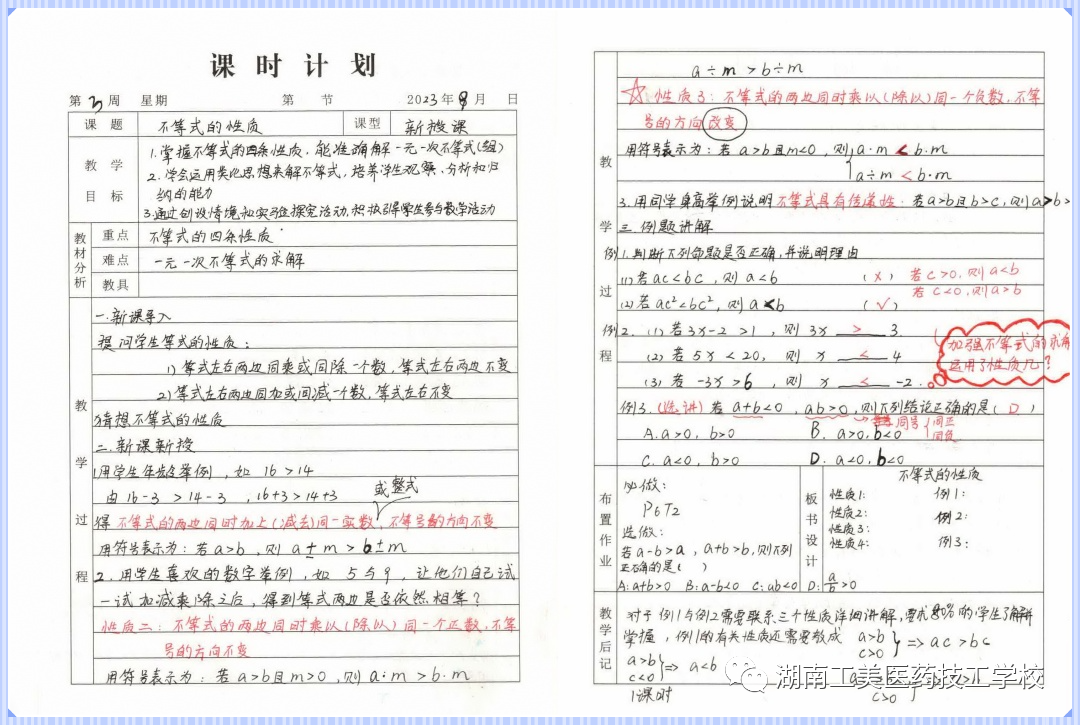 课时计划
第3周 星期 第 节 2023年9月 日
课题 不等式的性质 课型 新授课
教学目标
1.掌握不等式的四条性质.能准确解一元一次不等式(组)
2.学会运用类比思想来解不等式，培养学生观察、分析和归
纳的能力
3.通过创设情境和实验探究活动,积极引导学生参与数学活动
教材分析
重点 不等式的四条性质
难点 一元一次不等式的求解
教具
教学过程
一.新课导入
提问学生等式的性质：
1)等式左右两边同乘或同除一个数,等式左右两边不变
2)等式左右两边同加或同减一个数,等式左右不变
猜想不等式的性质
二.新课新授
1用学生年龄举例，如 16>14
由16-3 >14-3 ,16+3>14+3 或整式
得 不等式的两边同时加上(减去)同一实数，不等号的方向不变
用符号表示为：若a>b，则 a±m>b±m
2.用学生喜欢的数字举例，如 5与9，让他们自己试
一试加减乘除之后，得到等式两边是否依然相等？
性质二：不等式的两边同时乘以(除以)同一个正数,不等
号的方向不变
用符号表示为：若a>b且m>0 ,则a·m>b·m
教学过程
a÷m >b÷m
☆性质3：不等式的两边同时乘以(除以)同一个负数，不等
号的方向改变
用符号表示为：若a>b且m<0，则{a·m<b·m
a÷m<b·m
3.用同学身高举例说明不等式具有传递性：若a>b且b>c,则a>b>
三.例题讲解
例1.判断下列命题是否正确,并说明理由
(1)若ac<bc，则a<b (×) 若c>0,则a<b
若c<0,则a>b
(2)若ac²<bc²,则a<b (√)
例2. (1)若3x-2>1，则 3x > 3
(2)若5x<20，则 x < 4
(3)若-3x>6，则 x < -2.
加强不等式的求解
运用了性质几？
例3.(选讲)若a+b<0，ab>0，则下列结论正确的是(D)
同号{同正
同负
A.a>0, b>0 B. a>0,b<0
C. a<0, b>0 D. a<0,b<0
布置作业
必做：
P6T2
选做：
若a-b>a，a+b>b,则下列
正确的是( )
A:a+b>0 B:a-b<0 C:ab<0 D:a/b>0
板书设计
不等式的性质
性质1: 例1：
性质2: 例2：
性质3:
性质4: 例3：
教学后记
对于例1与例2需要联系三个性质详细讲解,要求80%的学生了解并
掌握，例1的有关性质还需要教成 a>b
c>0}=>ac>bc
a>b
c<0}=>a<b
c>0}
1课时
湖南工美医药技工学校